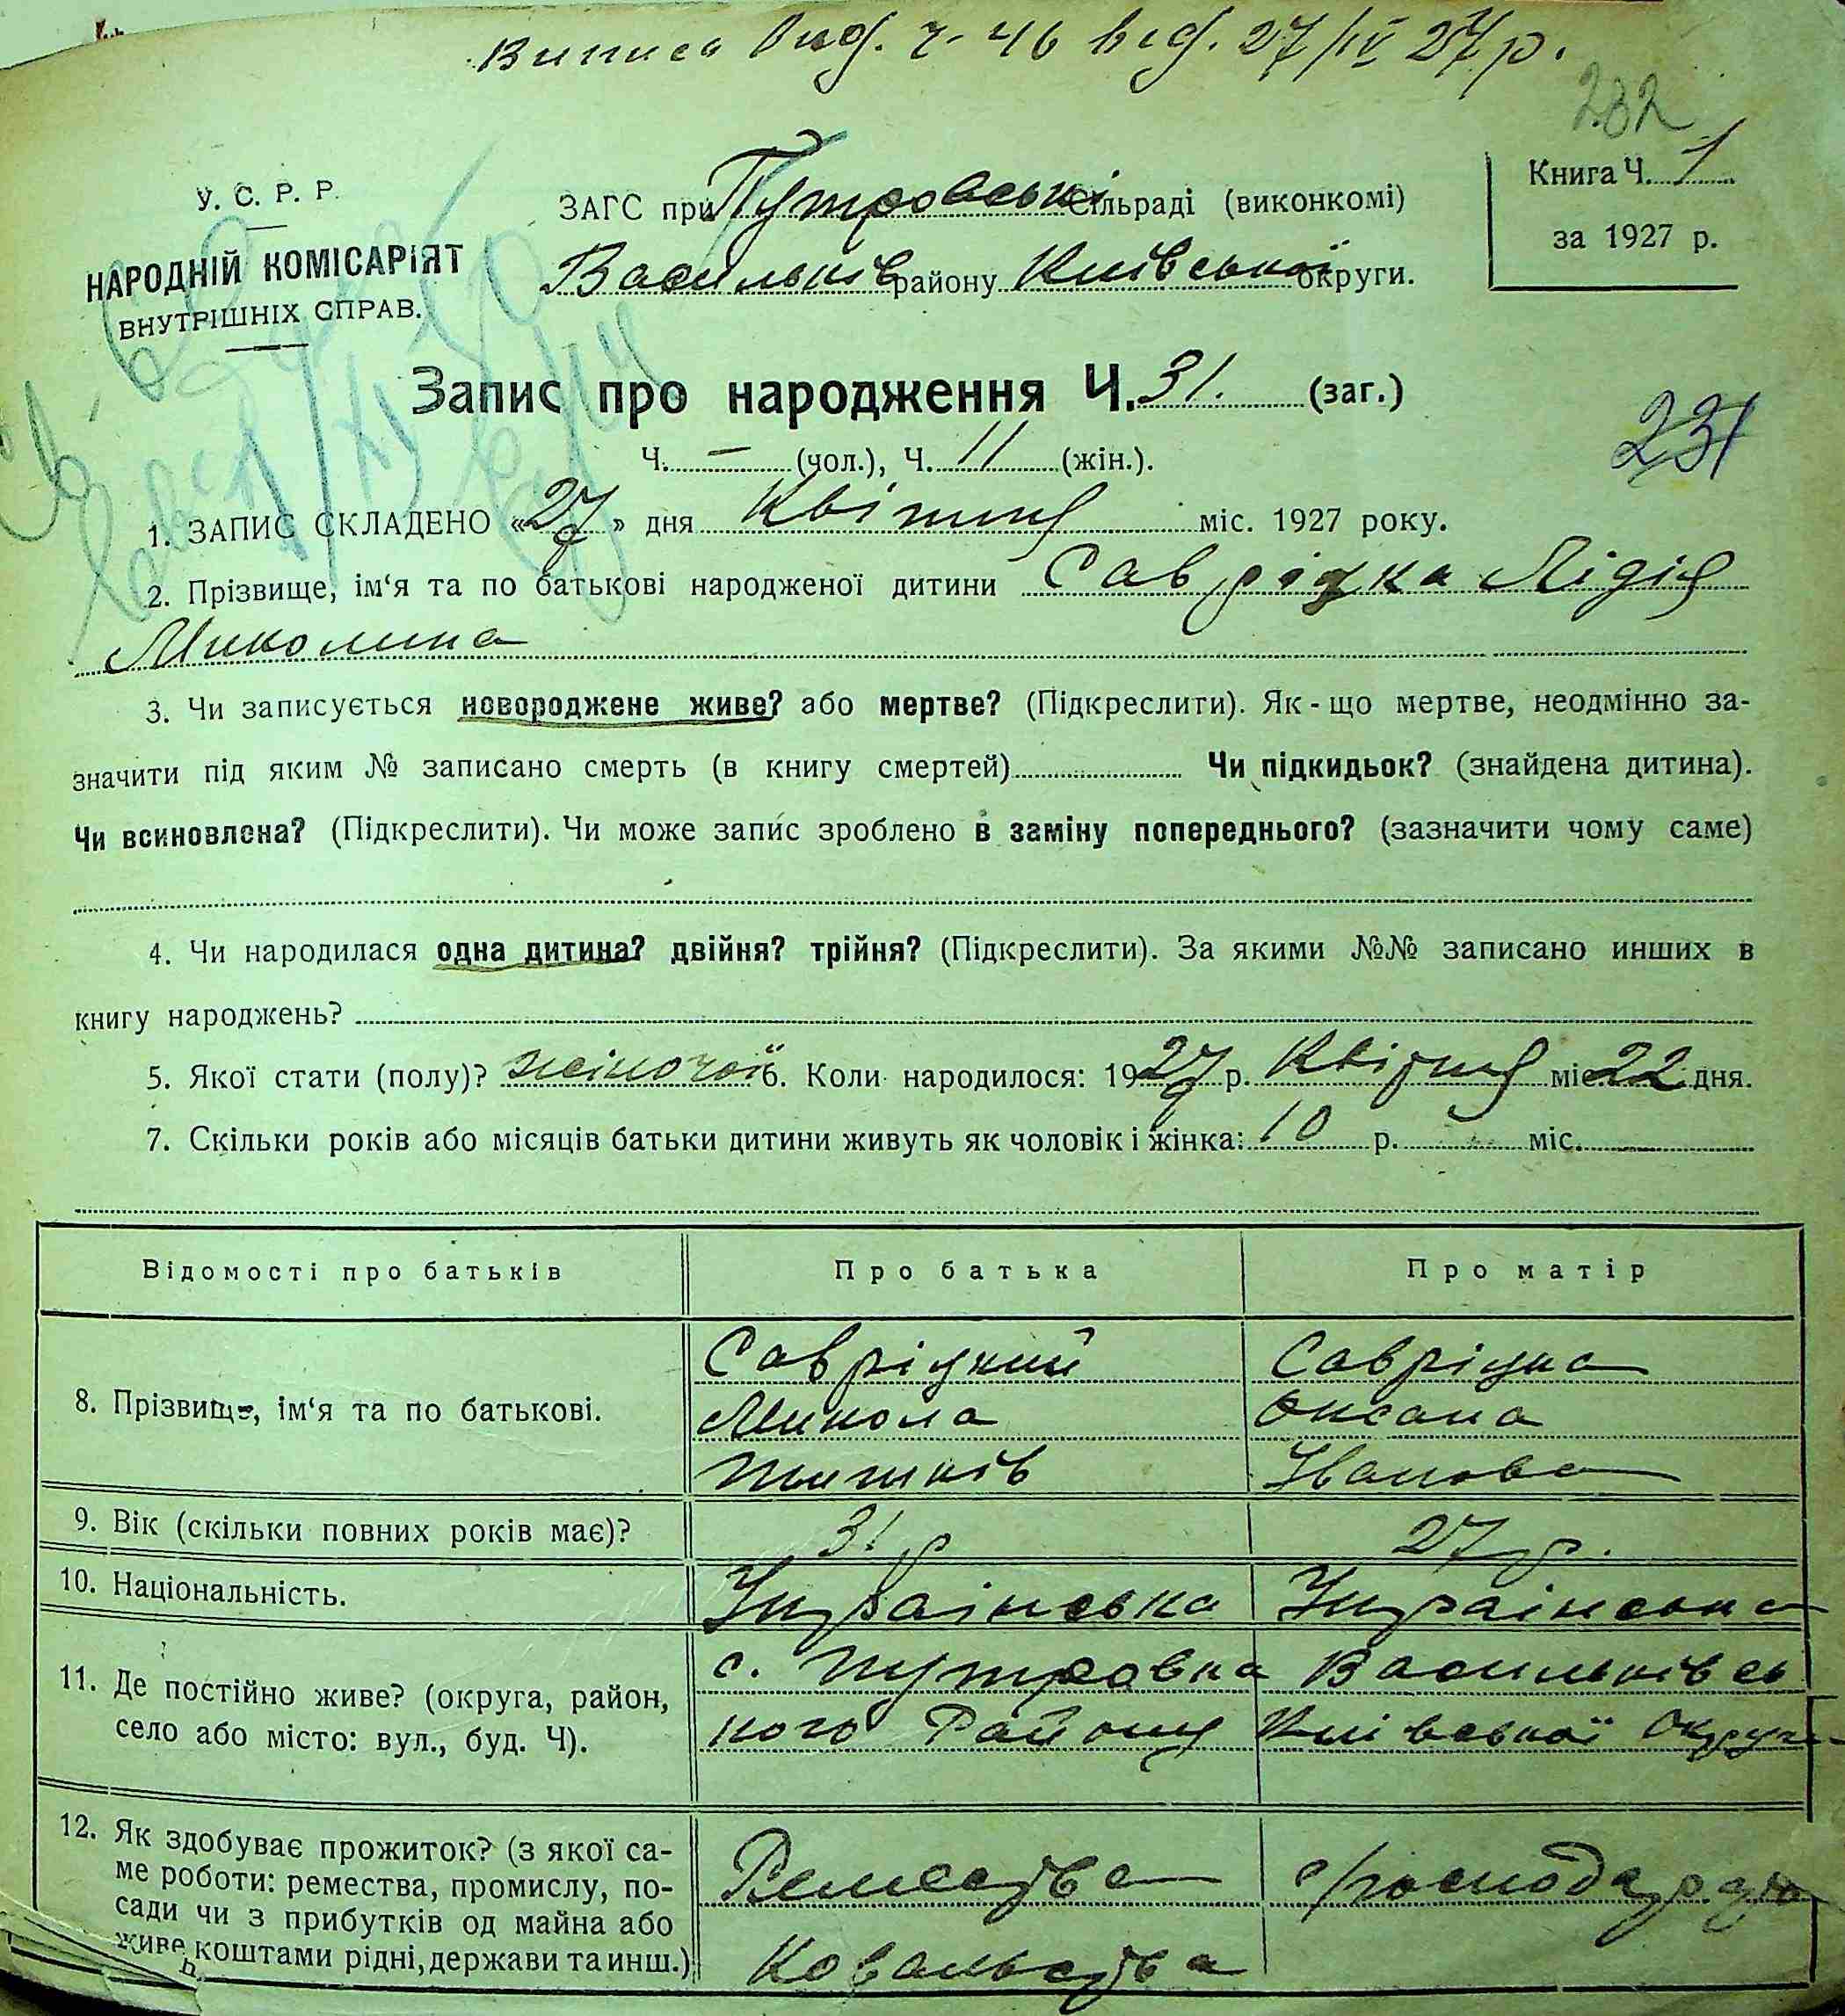 Випись вид. ч. 46 від. 27/IV 27 р.
232
У. С. Р. Р.
НАРОДНІЙ КОМІСАРІЯТ
ВНУТРІШНІХ СПРАВ.
ЗАГС при Путровські Сільраді (виконкомі)
Васильків району Київської округи.
Книга Ч. 1
за 1927 р.
Запис про народження Ч. 31. (заг.)
231
Ч. — (чол.), Ч. 11 (жін.).
1. ЗАПИС СКЛАДЕНО «27» дня Квітня міс. 1927 року.
2. Прізвище, ім‘я та по батькові народженої дитини Савріцка Лідія
Миколина
3. Чи записується новороджене живе? або мертве? (Підкреслити). Як-що мертве, неодмінно за-
значити під яким № записано смерть (в книгу смертей) Чи підкидьок? (знайдена дитина).
Чи всиновлена? (Підкреслити). Чи може запис зроблено в заміну попереднього? (зазначити чому саме)
4. Чи народилася одна дитина? двійня? трійня? (Підкреслити). За якими №№ записано инших в
книгу народжень?
5. Якої стати (полу)? жіночої 6. Коли народилося: 1927 р. Квітня міс. 22 дня.
7. Скільки років або місяців батьки дитини живуть як чоловік і жінка: 10 р. міс.
Відомості про батьків Про батька Про матір
8. Прізвище, ім‘я та по батькові.
Савріцкий Савріцка
Микола Оксана
Тишків Іванова
9. Вік (скільки повних років має)? 31 р 27 р.
10. Національність. Українська Українська
11. Де постійно живе? (округа, район,
село або місто: вул., буд. Ч).
с. Путровка Васильківсь
кого Району Київської Округи
12. Як здобуває прожиток? (з якої са-
ме роботи: ремества, промислу, по-
сади чи з прибутків од майна або
живе коштами рідні, держави та инш.)
Ремества
Ковальства